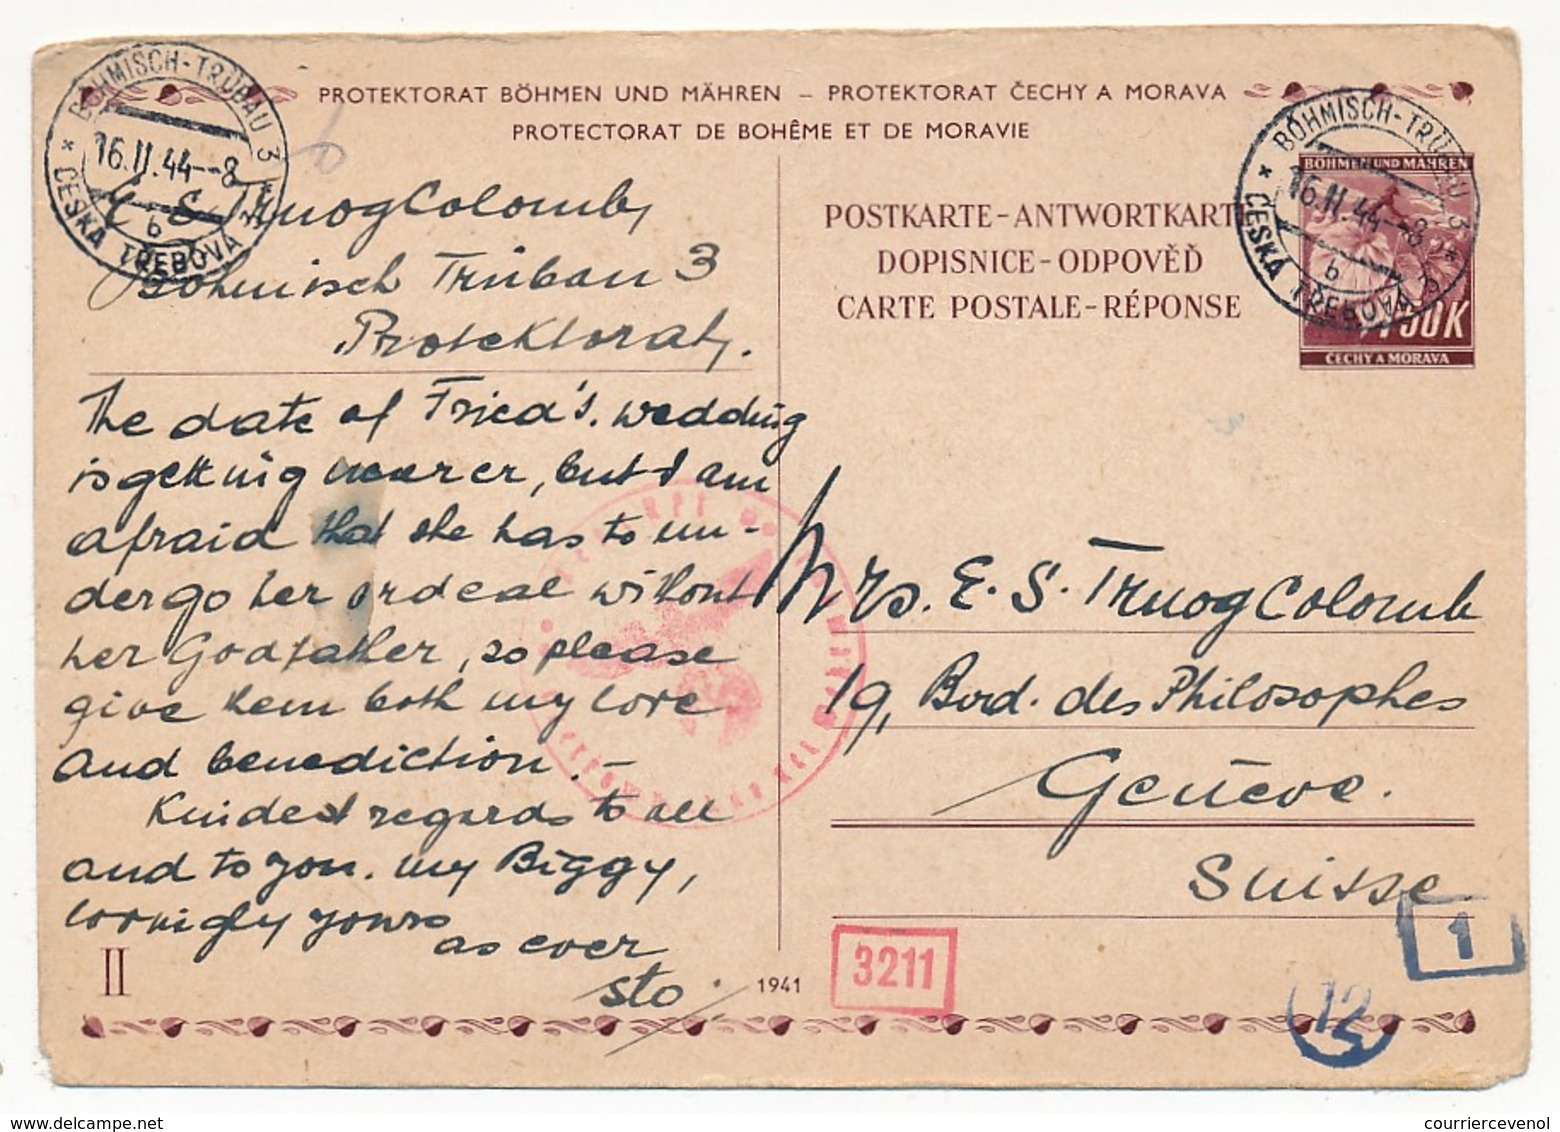 PROTEKTORAT BÖHMEN UND MÄHREN – PROTEKTORAT ČECHY A MORAVA
PROTECTORAT DE BOHÊME ET DE MORAVIE
BÖHMISCH-TRÜBAU 3
16.II.44--8
b
* ČESKÁ TŘEBOVÁ 3 *
E TruogColomb,
Böhmisch Trübau 3
Protektorat,.
The date of Fried's. wedding
is getting nearer, but I am
afraid that she has to un-
dergo her ordeal without
her Godfather, so please
give them both my love
and benediction.–
Kindest regards to all
and to you. my Biggy,
lovingly yours
as ever
sto.
II
1941
POSTKARTE-ANTWORTKART
DOPISNICE-ODPOVĚĎ
CARTE POSTALE-RÉPONSE
BÖHMISCH-TRÜBAU 3
16.II.44--8
b
* ČESKÁ TŘEBOVÁ 3 *
BÖHMEN UND MÄHREN
50K
ČECHY A MORAVA
Mrs. E. S. TruogColomb
19, Bvd. des Philosophes
Genève.
Suisse
3211
1
12
courriercevenol.com